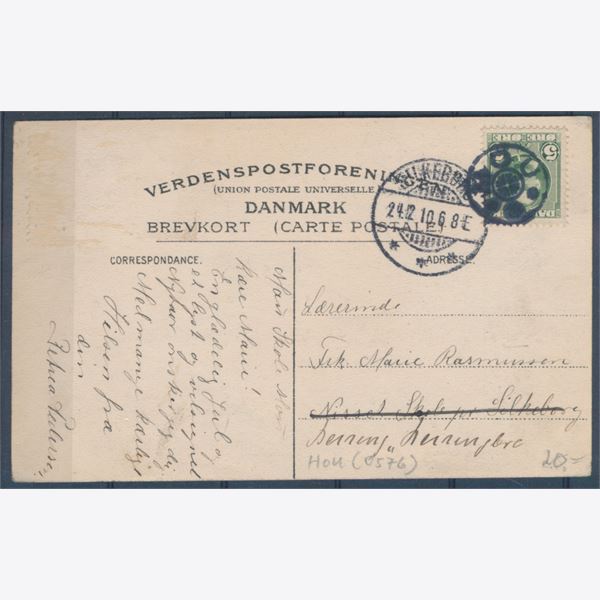 VERDENSPOSTFORENI
(UNION POSTALE UNIVERSELLE
DANMARK
BREVKORT (CARTE POSTALE)
SILKEBORG
24.12.10.6-8E
5
CORRESPONDANCE.
ADRESSE.
Skole
Kære Marie!
En glædelig Jul og
et lyst og velsignet
Nytaar ønskes dig
Med mange kærlige
Hilsen fra
din
Petrea Petersen
Lærerinde
Frk. Marie Rasmussen
Nisset Skole pr Silkeborg
HOU (0576)
20.-